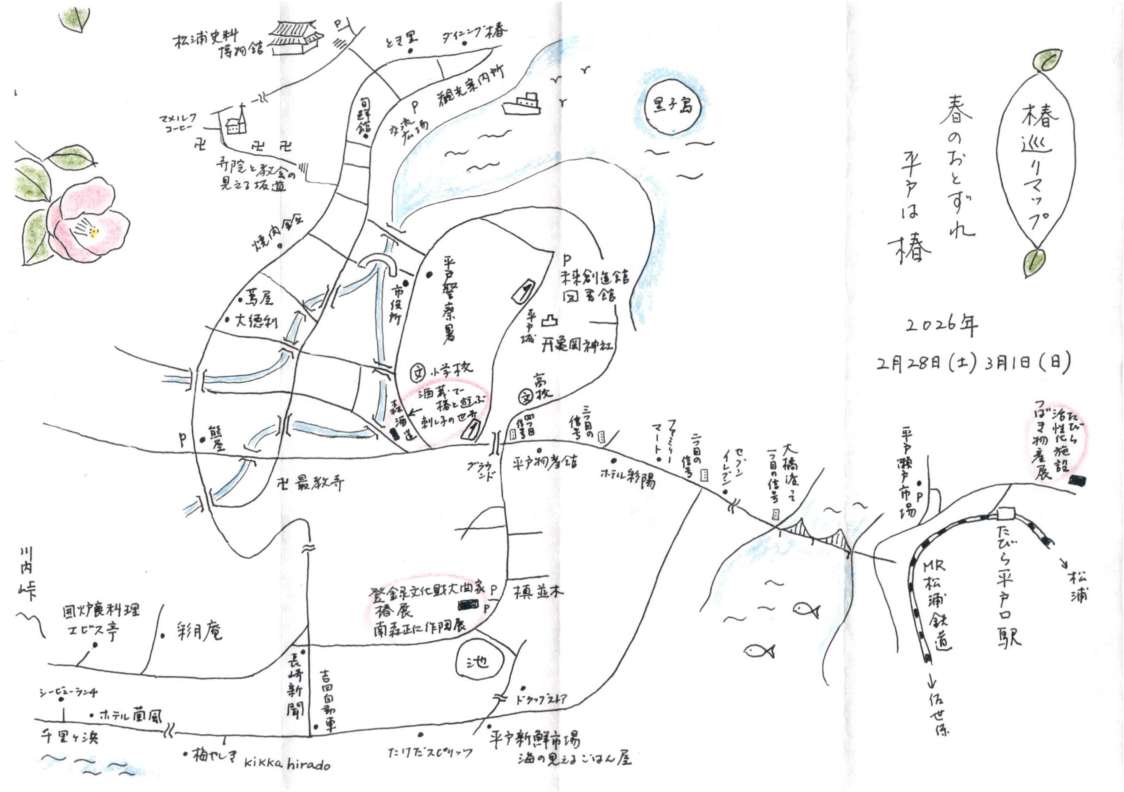 椿巡りマップ
春のおとずれ
平戸は椿
2026年
2月28日(土) 3月1日(日)
松浦史料
博物館
P
とき里
ダイニング椿
観光案内所
P
交流
広場
旬鮮館
マメルク
コーヒー
卍
卍
卍
寺院と教会の
見える坂道
黒子島
焼肉金
蔦屋
大徳利
市役所
平戸警察署
P
未来創造館
図書館
平戸城
亀岡神社
文 小学校
文 高校
酒蔵で
椿と遊ぶ
刺し子の世界
森酒造
P
熊屋
卍 最教寺
グラウンド
四つ目の
信号
平戸物産館
三つ目の
信号
ホテル彩陽
ファミリー
マート
二つ目の
信号
セブン
イレブン
大橋渡って
一つ目の信号
平戸瀬戸市場
P
たびら
活性化施設
つばき物産展
たびら平戸口駅
MR
松浦鉄道
松浦
佐世保
川内峠
囲炉裏料理
エビス亭
彩月庵
登録文化財大曲家
椿展
南森正仁作陶展
P
P
槙並木
池
長崎新聞
吉田自動車
シービューランチ
ホテル蘭風
千里ヶ浜
梅やしき
kikka hirado
たけだスピリッツ
ドラッグストア
平戸新鮮市場
海の見えるごはん屋